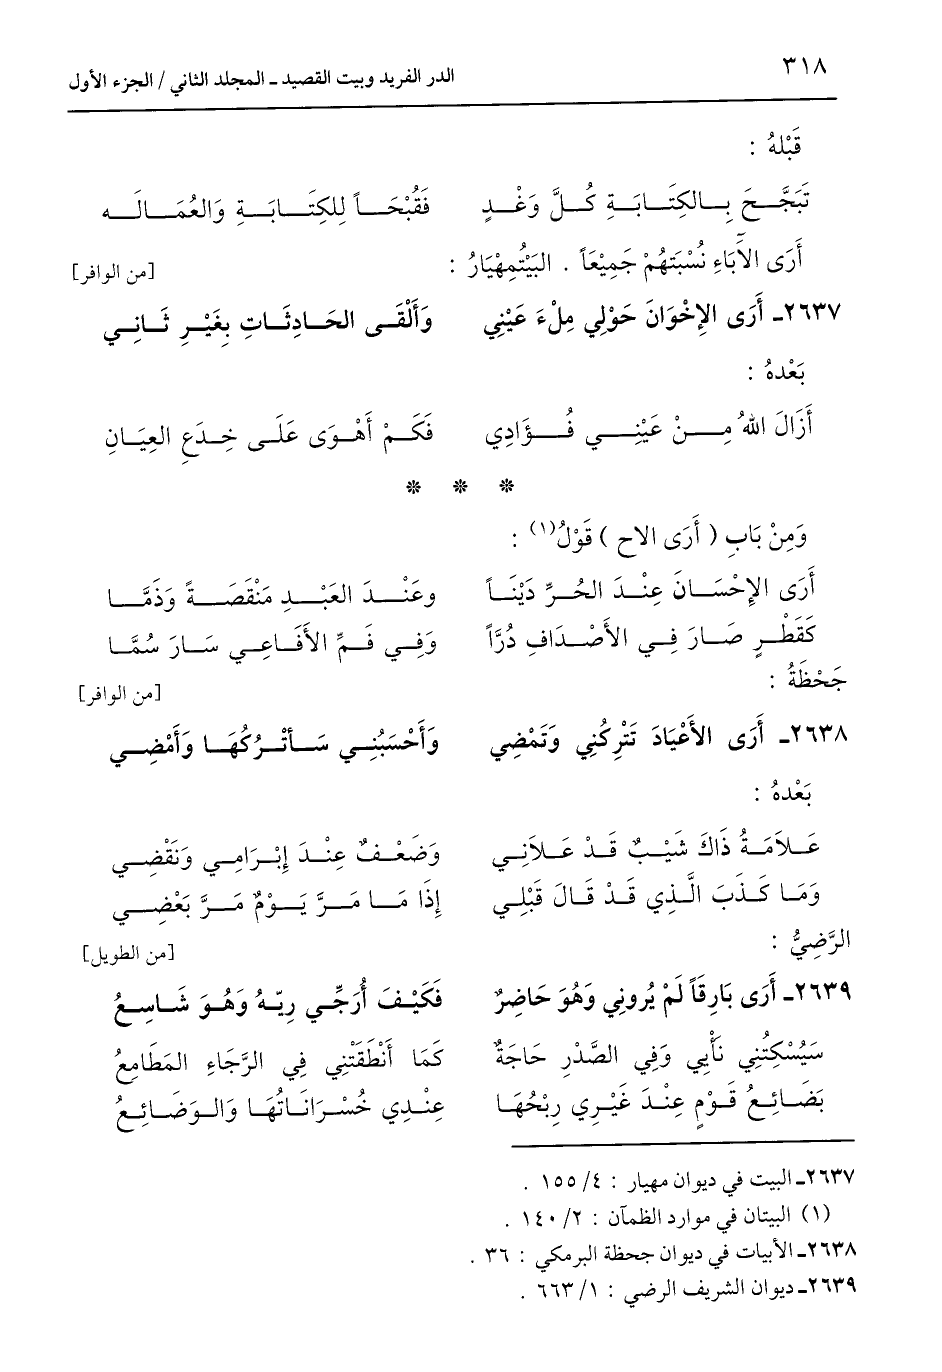 ٣١٨
الدر الفريد وبيت القصيد ـ المجلد الثاني / الجزء الأول
قَبْلهُ :
تَبَجَّحَ بِالكِتَابَةِ كُلَّ وَغْدٍ فَقُبْحَاً لِلكِتَابَةِ وَالعُمَالَه
أَرَى الآبَاءِ نُسْبَتهُمْ جَمِيْعَاً . البَيْتُمِهْيَارُ : [من الوافر]
٢٦٣٧ـ أَرَى الإِخْوَانَ حَوْلِي مِلْءَ عَيْنِي وَأَلْقَى الحَادِثَاتِ بِغَيْرِ ثَانِي
بَعْدهُ :
أَزَالَ اللهُ مِنْ عَيْنِي فُؤَادِي فَكَمْ أَهْوَى عَلَى خِدَعِ العِيَانِ
* * *
وَمِنْ بَابِ ( أَرَى الاح ) قَوْلُ(١) :
أَرَى الإِحْسَانَ عِنْدَ الحُرِّ دَيْنَاً وعَنْدَ العَبْدِ مَنْقَصَةً وَذَمَّا
كَقَطْرٍ صَارَ فِي الأَصْدَافِ دُرَّاً وَفِي فَمِّ الأَفَاعِي سَارَ سُمَّا
جَحْظَةُ : [من الوافر]
٢٦٣٨ـ أَرَى الأَعْيَادَ تَتْرِكُنِي وَتَمْضِي وَأَحْسَبُنِي سَأَتْرُكُهَا وَأَمْضِي
بَعْدهُ :
عَلاَمَةُ ذَاكَ شَيْبٌ قَدْ عَلاَنِي وَضَعْفٌ عِنْدَ إِبْرَامِي وَنَقْضِي
وَمَا كَذَبَ الَّذِي قَدْ قَالَ قَبْلِي إِذَا مَا مَرَّ يَوْمٌ مَرَّ بَعْضِي
الرَّضِيُّ : [من الطويل]
٢٦٣٩ـ أَرَى بَارِقَاً لَمْ يُرونِي وَهُوَ حَاضِرٌ فَكَيْفَ أُرَجِّي رِيّهُ وَهُوَ شَاسِعُ
سَيُسْكِتُنِي نَأْيِي وَفِي الصَّدْرِ حَاجَةٌ كَمَا أَنْطَقَتْنِي فِي الرَّجَاءِ المَطَامِعُ
بَضَائِعُ قَوْمٍ عِنْدَ غَيْرِي رِبْحُهَا عِنْدِي خُسْرَانَاتُهَا وَالوَضَائِعُ
٢٦٣٧ـ البيت في ديوان مهيار : ٤/ ١٥٥ .
(١) البيتان في موارد الظمآن : ٢/ ١٤٠ .
٢٦٣٨ـ الأبيات في ديوان جحظة البرمكي : ٣٦ .
٢٦٣٩ـ ديوان الشريف الرضي : ١/ ٦٦٣ .